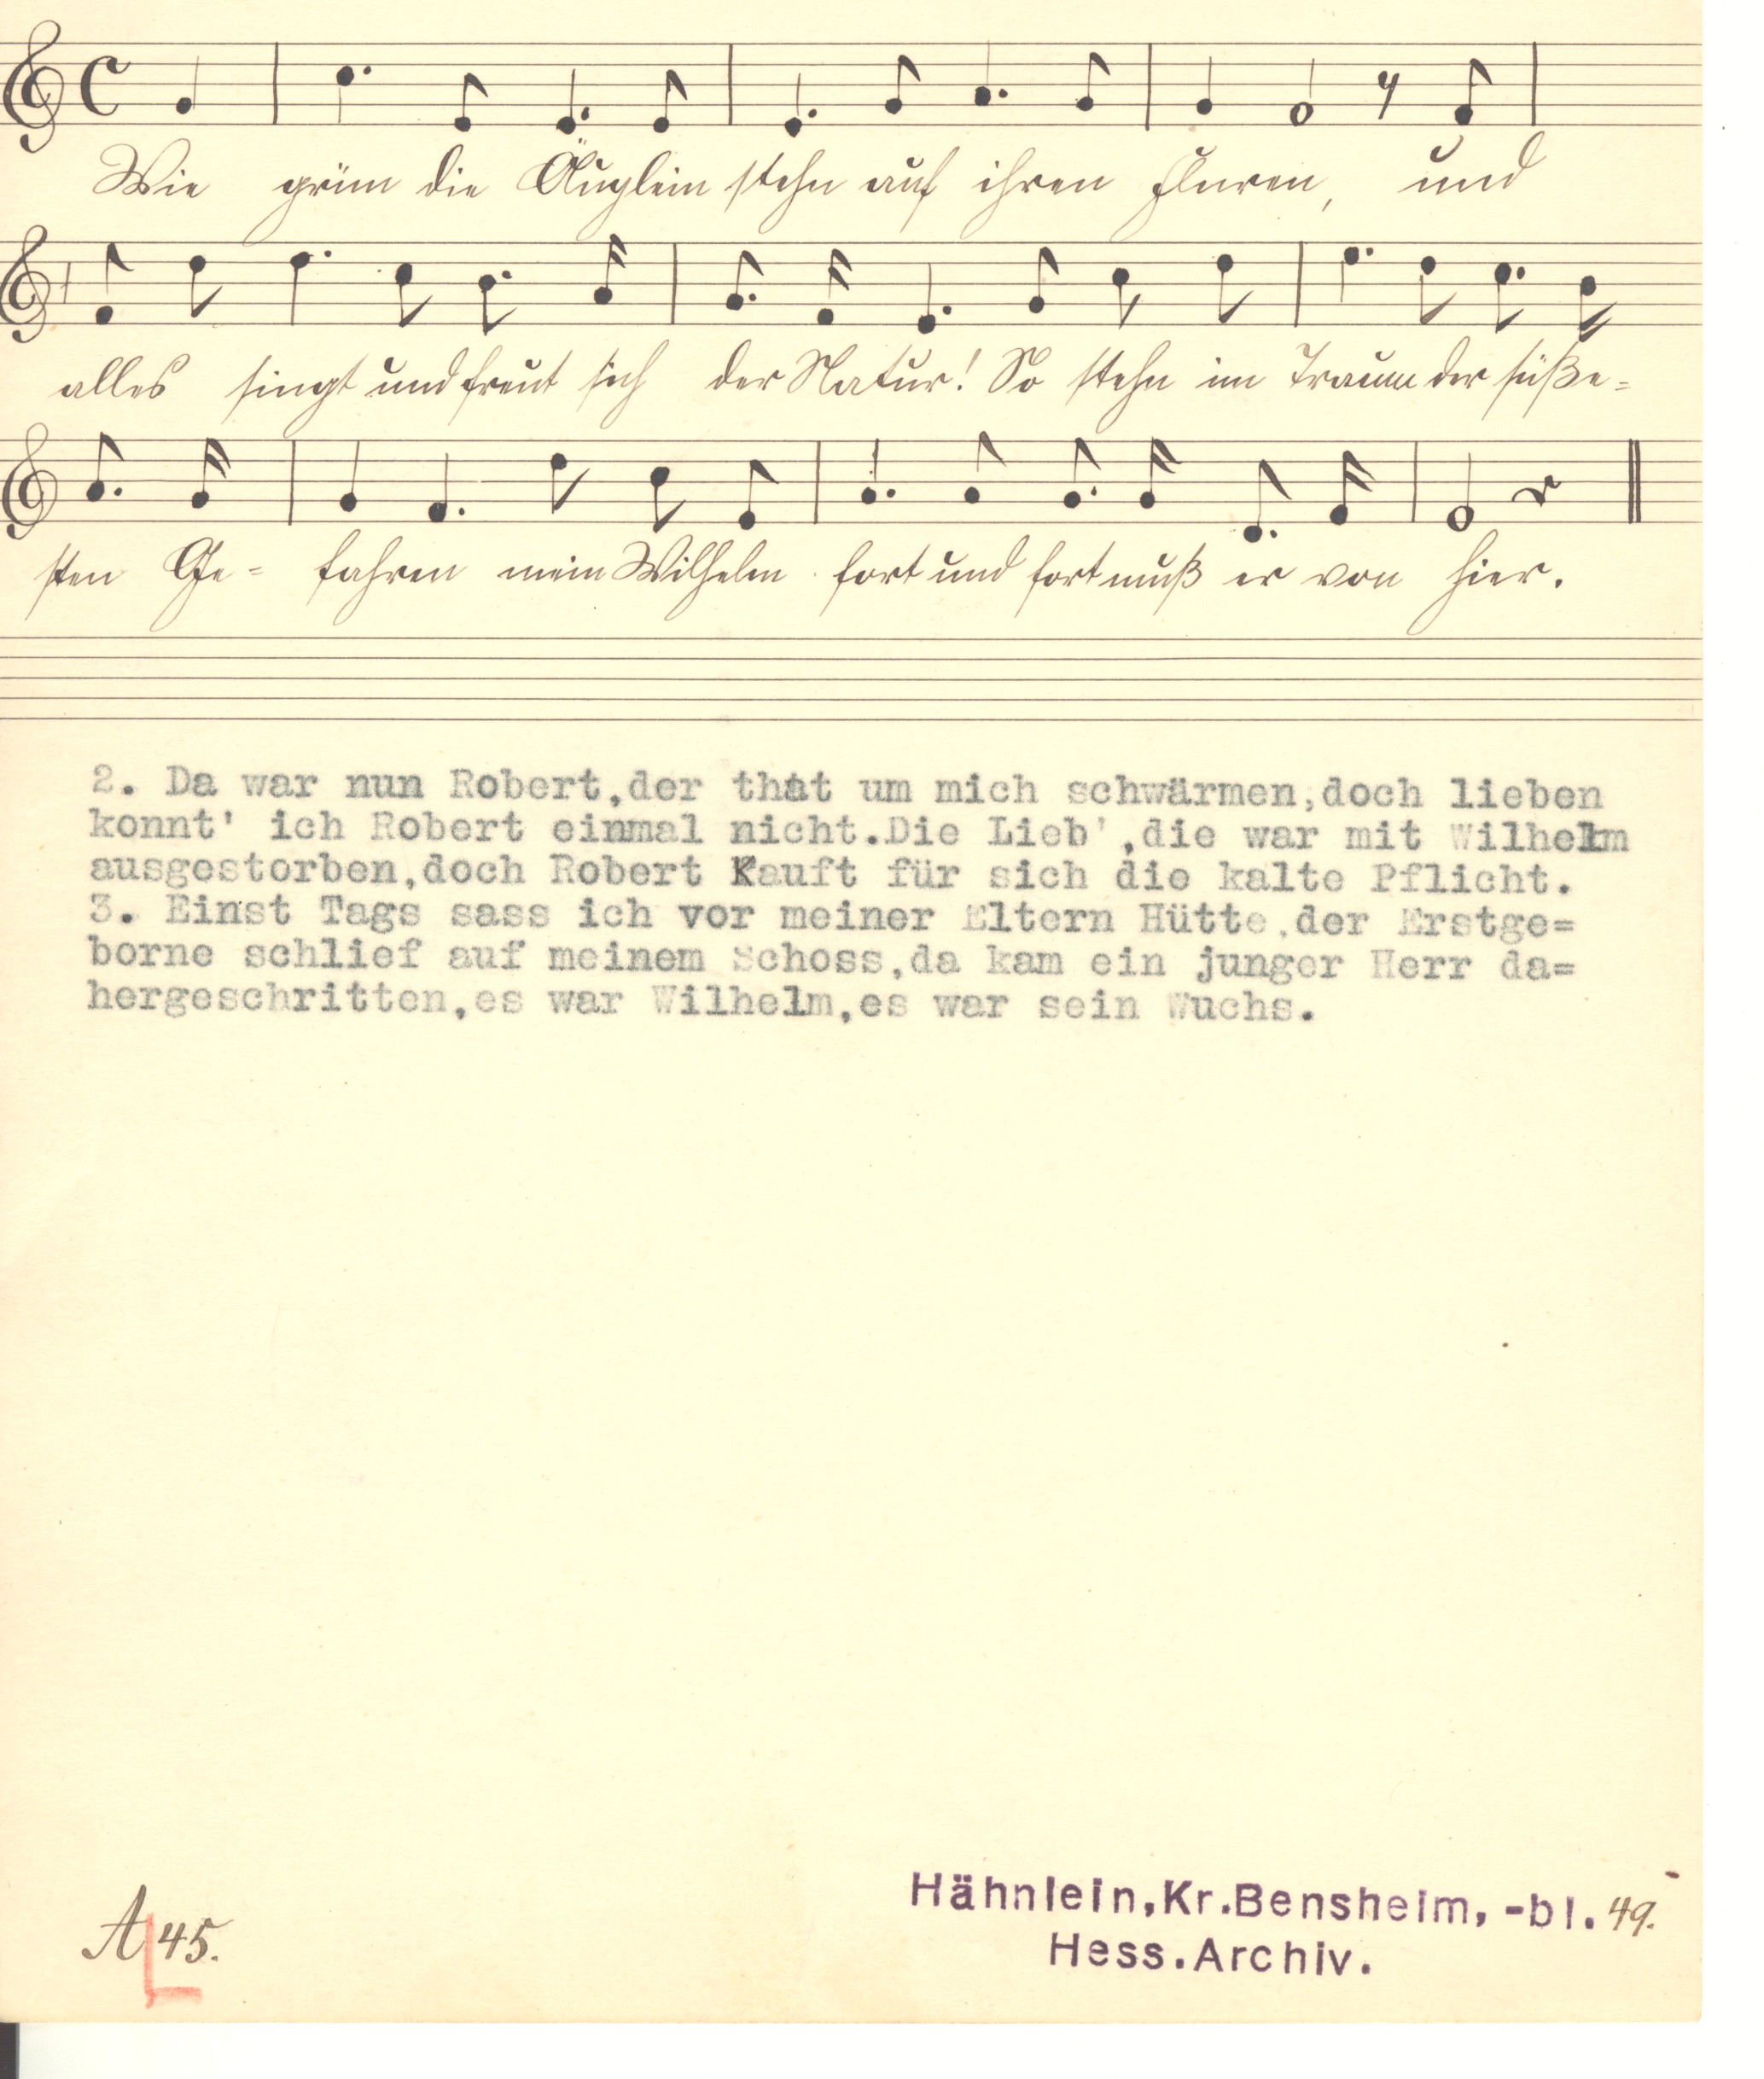 Wie grün die Äuglein stehn auf ihren Fluren, und
alles singt und freut sich der Natur! So stehn im Traum der süße=
sten Ge= fahren mein Wilhelm fort und fort muß er von hier.
2. Da war nun Robert,der that um mich schwärmen,doch lieben
konnt' ich Robert einmal nicht.Die Lieb',die war mit Wilhelm
ausgestorben,doch Robert Kauft für sich die kalte Pflicht.
3. Einst Tags sass ich vor meiner Eltern Hütte,der Erstge=
borne schlief auf meinem Schoss,da kam ein junger Herr da=
hergeschritten,es war Wilhelm,es war sein Wuchs.
A 45.
Hähnlein,Kr.Bensheim,-bl. 49.
Hess.Archiv.